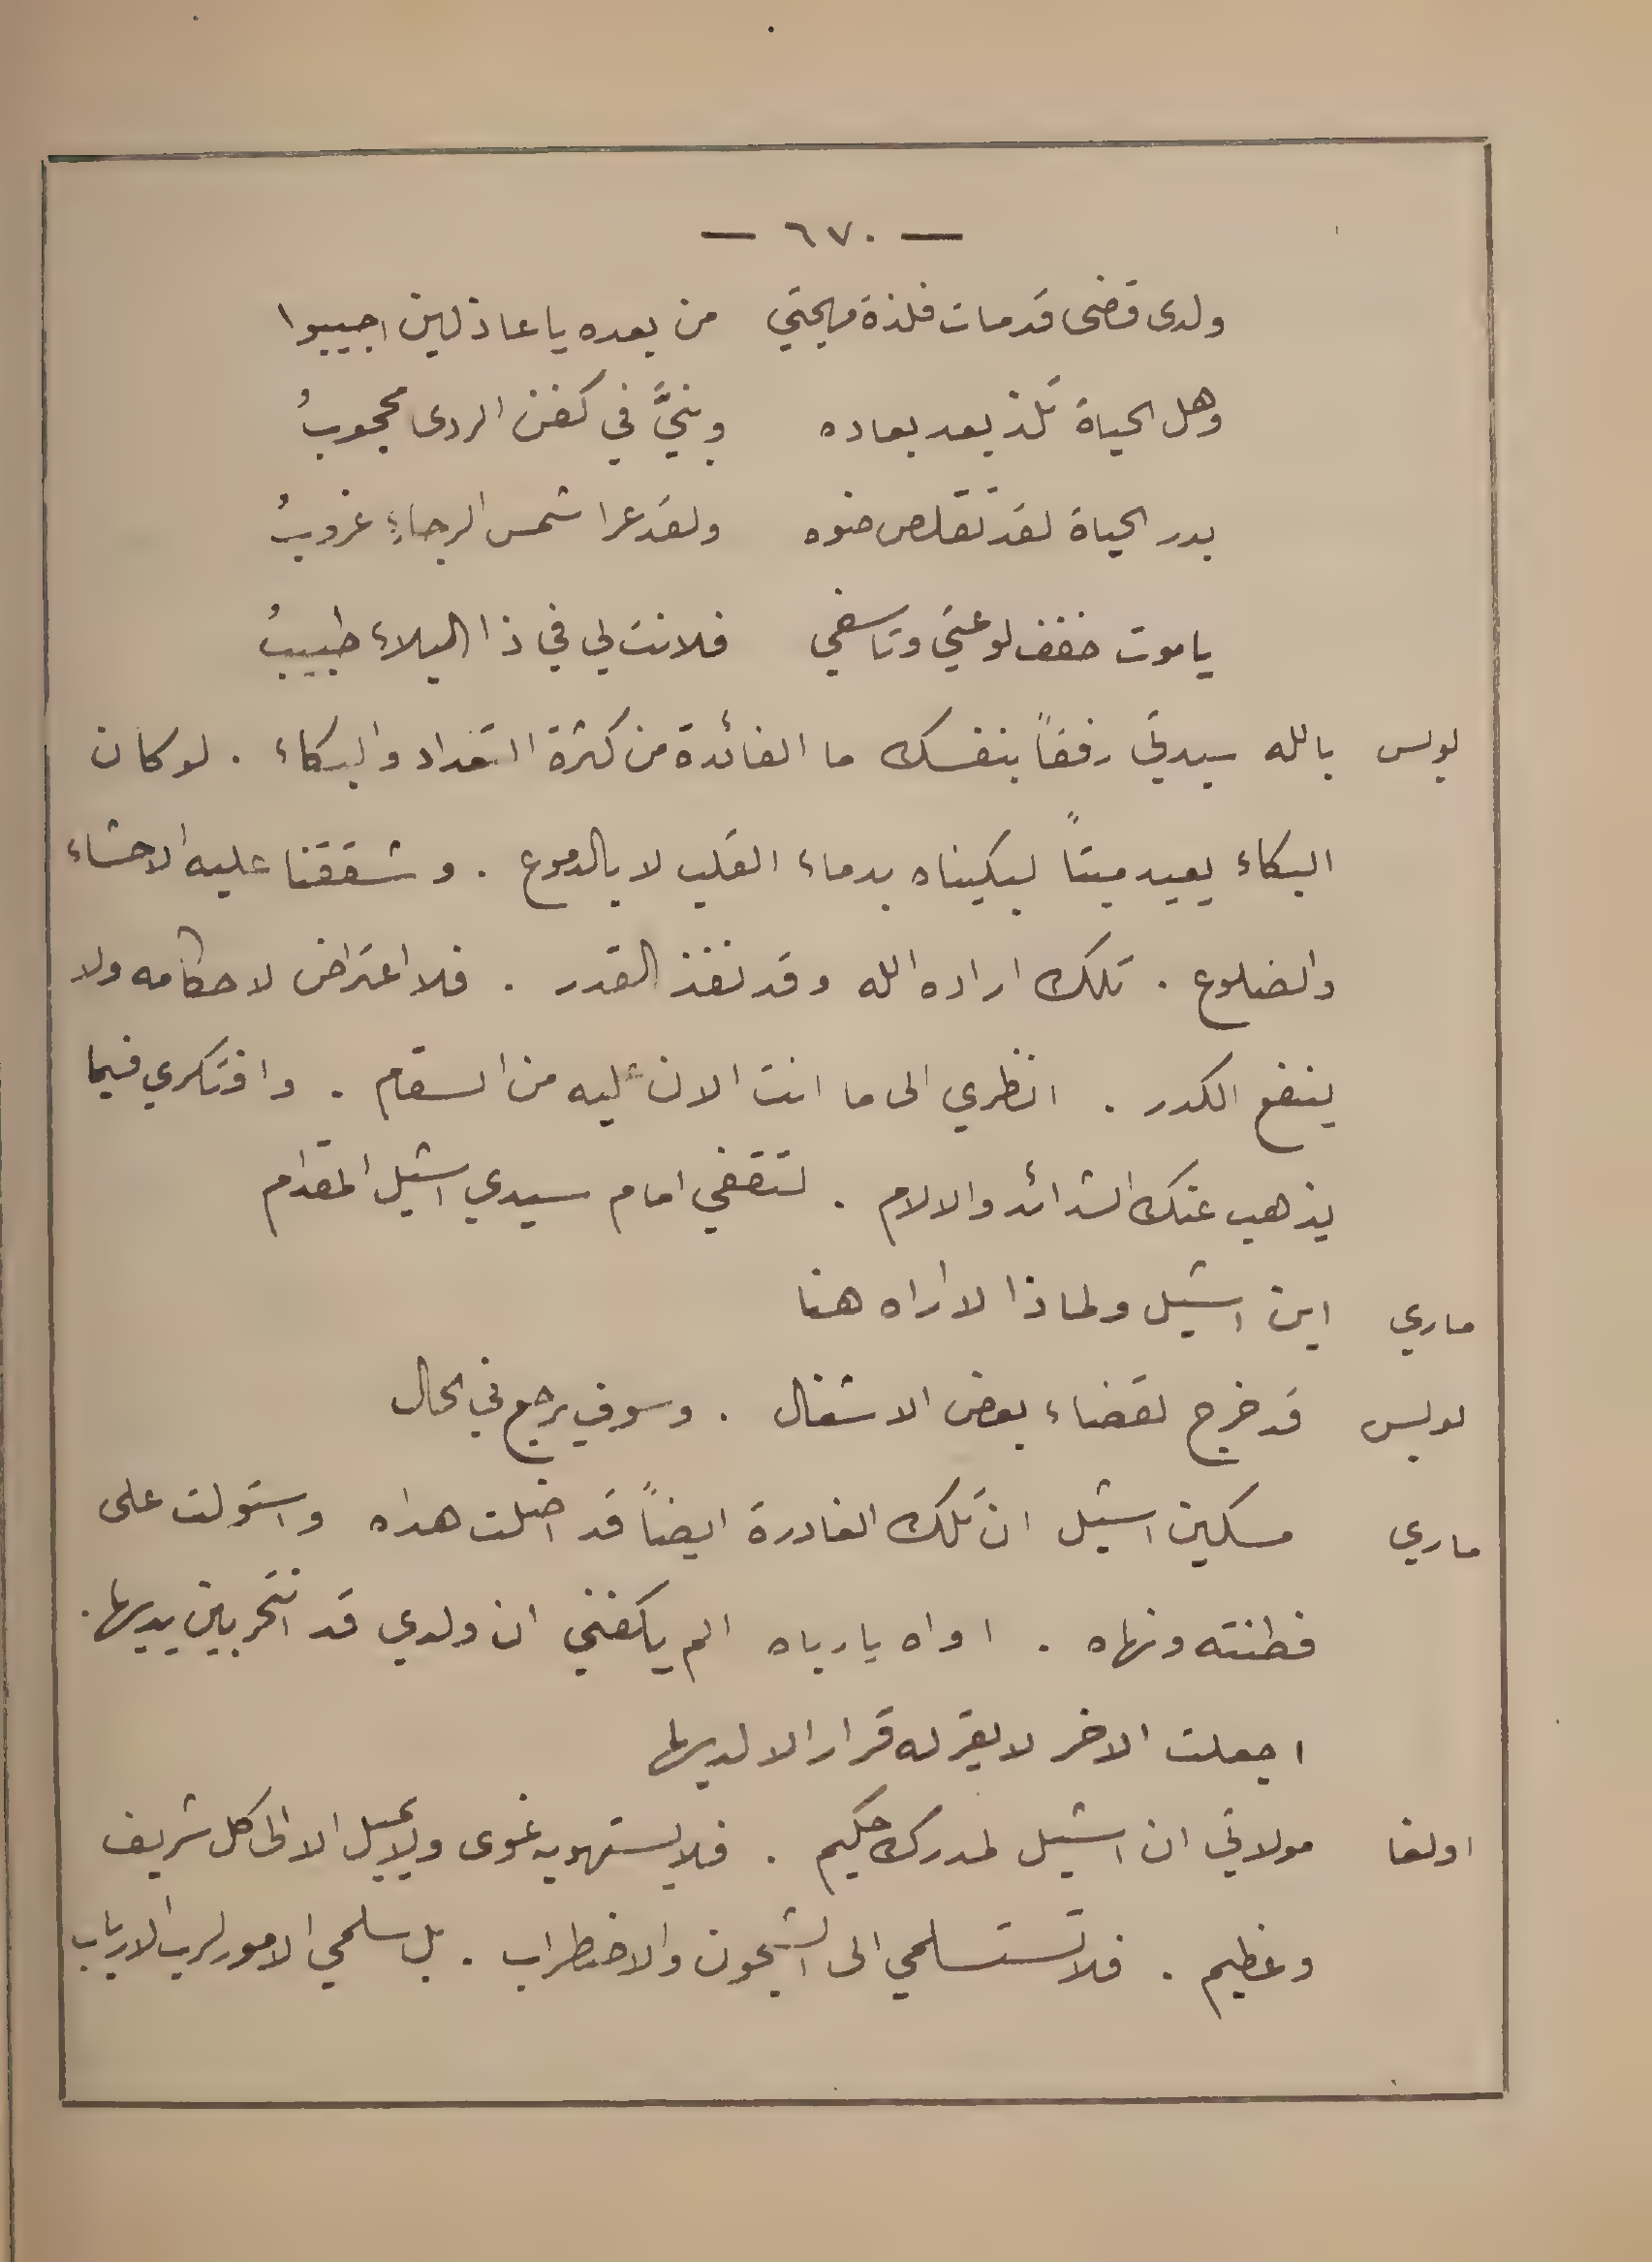 — ٦٧٠ —
ولدى قضى قد مات فلذة مهجتي من بعده يا عاذلين اجيبوا
وهل الحياة تلذ بعد بعاده وبنيَّ في كفن الردى محجوبُ
بدر الحياة لقد تقلص ضوه ولقد عرا شمس الرجاءِ غروبُ
يا موت خفف لوعتي وتاسفي فلانت لي في ذا البلاء طبيبُ
لويس بالله سيدتي رفقاً بنفسك ما الفائدة من كثرة التعداد والبكاء . لو كان
البكاء يعيد ميتاً لبكيناه بدماء القلب لا بالدموع . وشققنا عليه الاحشاء
والضلوع . تلك اراده الله وقد نفذ القدر . فلا اعتراض لاحكامه ولا
ينفع الكدر . انظري الى ما انت الان عليه من السقام . وافتكري فيما
يذهب عنك الشدائد والالام . لتقفي امام سيدي اشيل المقدام
ماري اين اشيل ولماذا لا اراه هنا
لويس قد خرج لقضاء بعض الاشغال . وسوف يرجع في الحال
ماري مسكين اشيل ان تلك الغادرة ايضاً قد اضلت هداه واستولت على
فطنته ونهاه . اواه يا رباه الم يكفني ان ولدي قد انتحر بين يديها .
اجعلت الاخر لا يقر له قرار الا لديها
اولغا مولاتي ان اشيل لمدرك حكيم . فلا يستهويه غوى ولا يميل الا الى كل شريف
وعظيم . فلا تستسلمي الى الشجون والاضطراب . بل سلمي الامور لرب الارباب